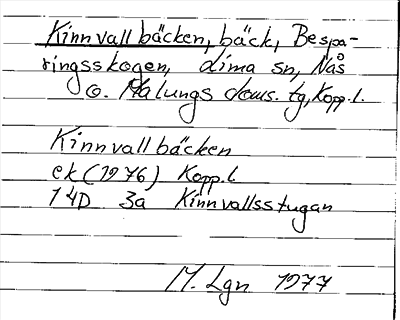 Kinnvallbäcken, bäck, Bespa-
ringsskogen, Lima sn, Nås
o. Malungs doms. tg, Kopp.l.
Kinnvallbäcken
ek (1976) Kopp.l.
14D 3a Kinnvallsstugan
M. Lgn 1977